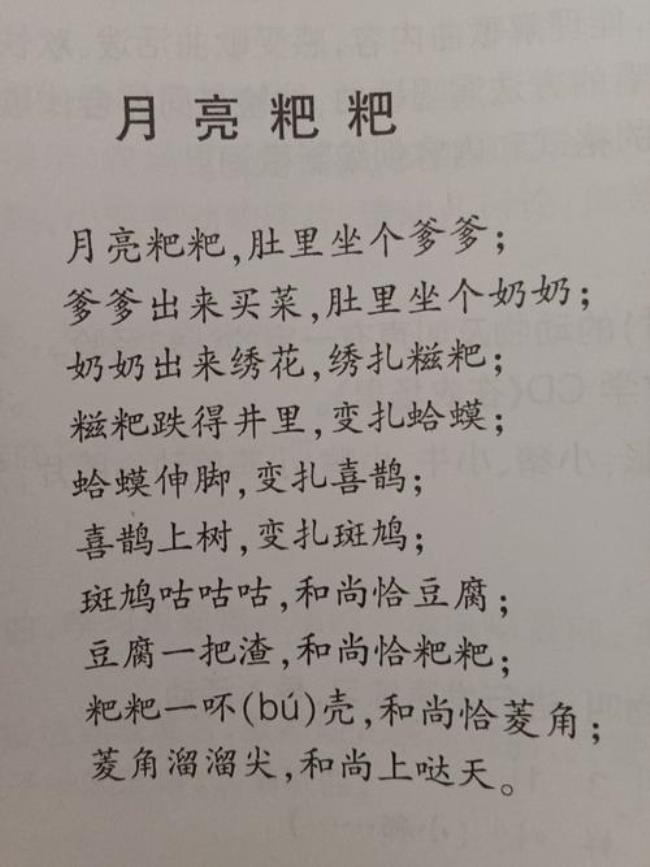 月亮粑粑
月亮粑粑,肚里坐个爹爹;
爹爹出来买菜,肚里坐个奶奶;
奶奶出来绣花,绣扎糍粑;
糍粑跌得井里,变扎蛤蟆;
蛤蟆伸脚,变扎喜鹊;
喜鹊上树,变扎斑鸠;
斑鸠咕咕咕,和尚恰豆腐;
豆腐一把渣,和尚恰粑粑;
粑粑一吥(bú)壳,和尚恰菱角;
菱角溜溜尖,和尚上哒天。